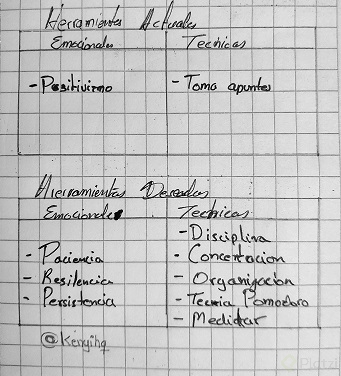 Herramientas Actuales
Emocionales Tecnicas
- Positivismo - Tomo apuntes
Hierramientas Deseadas
Emocionales Tecnicas
- Disciplina
- Paciencia - Concentracion
- Resilencia - Organización
- Persistencia - Tecnia Pomodoro
- Meditar
@kenyihq